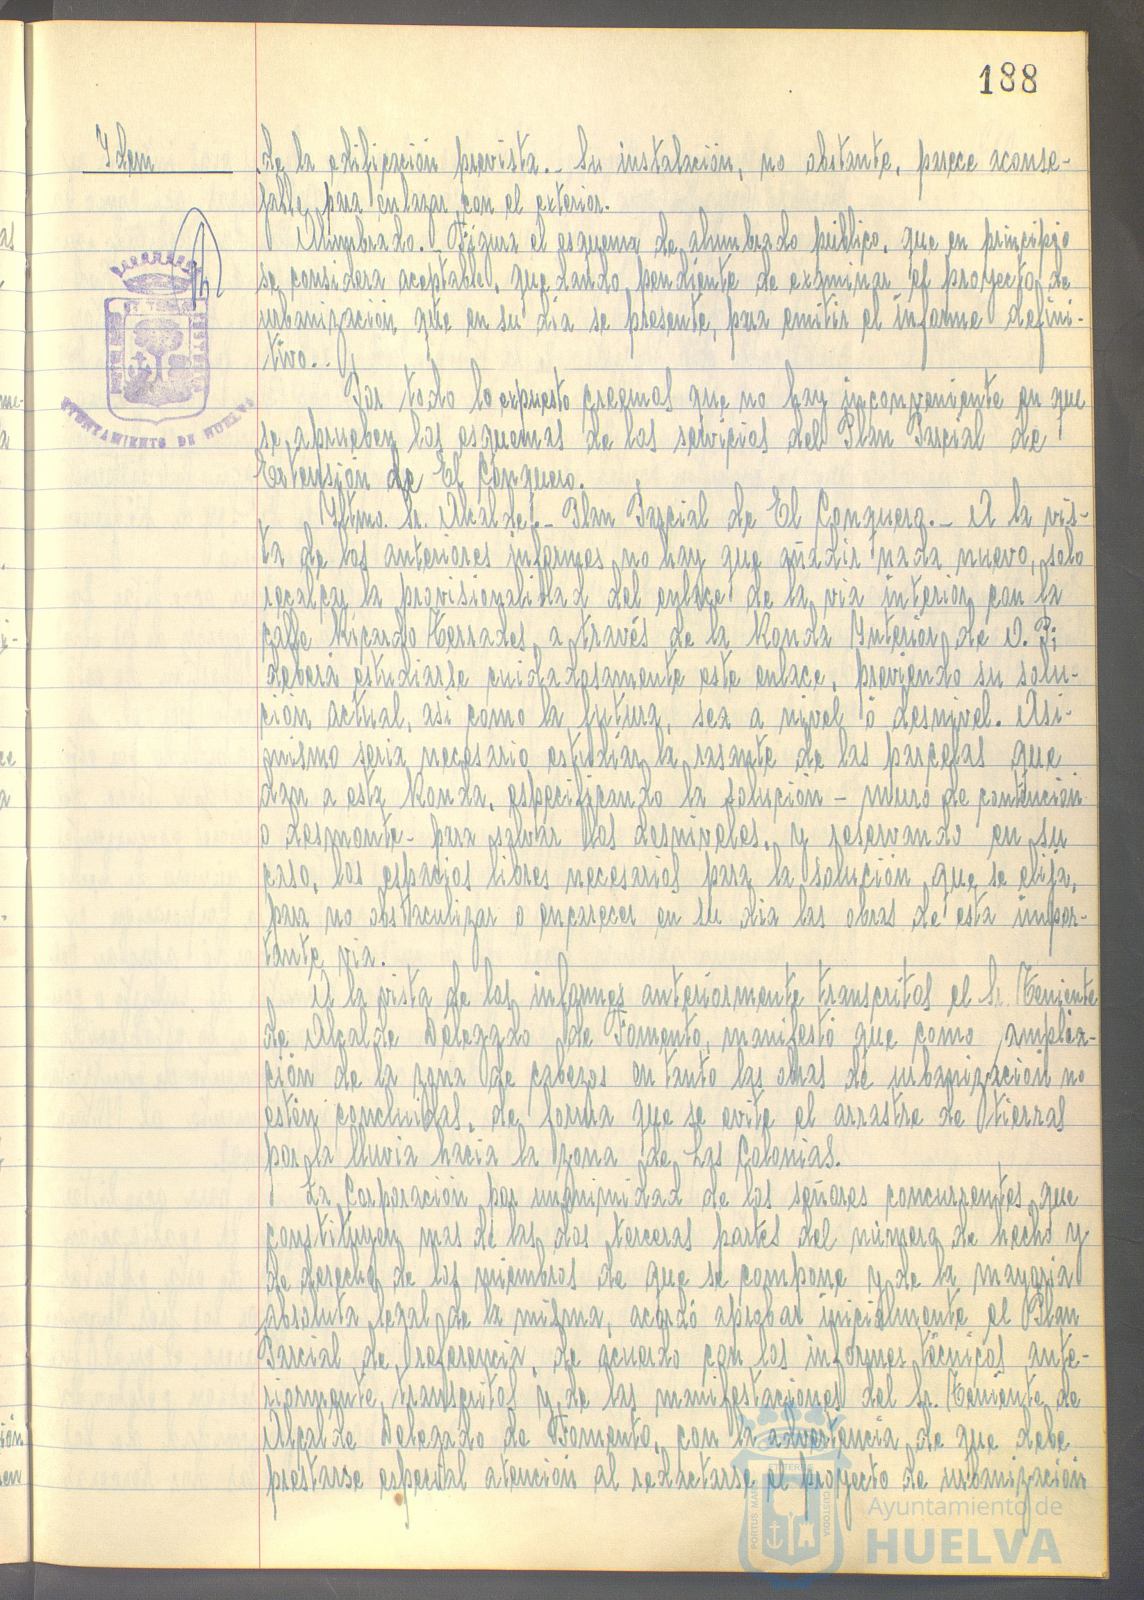 188
Idem
de la edificación prevista.- Su instalación, no obstante, parece aconse-
jable para enlazar con el exterior.
Alumbrado.- Figura el esquema de alumbrado público, que en principio
se considera aceptable, quedando pendiente de examinar el proyecto de
urbanización que en su día se presente, para emitir el informe defini-
tivo..
Por todo lo expuesto creemos que no hay inconveniente en que
se aprueben los esquemas de los servicios del Plan Parcial de
Extensión de El Conquero.
Iltmo. Sr. Alcalde.- Plan Parcial de El Conquero.- A la vis-
ta de los anteriores informes no hay que añadir nada nuevo, solo
recalcar la provisionalidad del enlace de la via interior con la
calle Ricardo Terrades, a través de la Ronda Interior de O. P;
deberá estudiarse cuidadosamente este enlace, previendo su solu-
ción actual, asi como la futura, sea a nivel ó desnivel. Asi-
mismo seria necesario estudiar la rasante de las parcelas que
dan a esta Ronda, especificando la solución - muro de contención
o desmonte - para salvar los desniveles, y reservando en su
caso, los espacios libres necesarios para la solución que se elija,
para no obstaculizar o encarecer en su dia las obras de esta impor-
tante via.
A la vista de los informes anteriormente transcritos el Sr. Teniente
de Alcalde Delegado de Fomento, manifestó que como amplia-
ción de la zona de cabezos en tanto las obras de urbanización no
estén concluidas, de forma que se evite el arrastre de tierras
por la lluvia hacia la zona de Las Colonias.
La Corporación por unanimidad de los señores concurrentes que
constituyen mas de las dos terceras partes del número de hecho y
de derecho de los miembros de que se compone y de la mayoria
absoluta legal de la misma, acordó aprobar inicialmente el Plan
Parcial de referencia, de acuerdo con los informes técnicos ante-
riormente transcritos y de las manifestaciones del Sr. Teniente de
Alcalde Delegado de Fomento, con la advertencia de que debe
prestarse especial atención al redactarse el proyecto de urbanización
AYUNTAMIENTO DE HUELVA
PORTUS MARIS ET TERRAE CUSTODIA
Ayuntamiento de
HUELVA